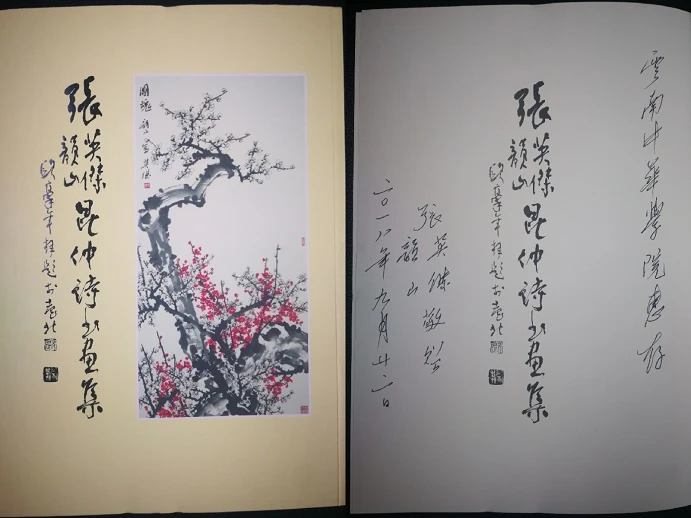 張英傑
韻山
昆仲詩書畫集
歐豪年敬題於臺北
國魂
張英傑
韻山
昆仲詩書畫集
歐豪年敬題於臺北
雲南中華學院惠存
張英傑
韻山
敬贈
二〇一八年九月廿二日